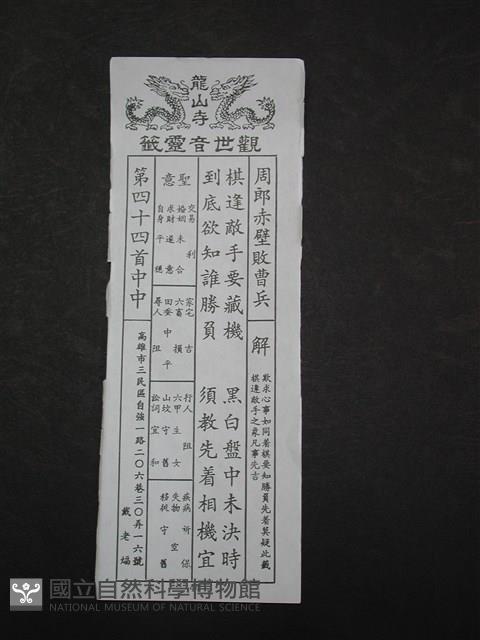 龍山寺
觀世音靈籤
周郎赤壁敗曹兵
解
欺求心事如同著棋要知勝負先著莫疑此籤
棋逢敵手之象凡事先吉
棋逢敵手要藏機 黑白盤中未決時
到底欲知誰勝負 須教先着相機宜
聖意
交易 利
婚姻 未合
求財 遂意
自身 平穩
家宅 吉
六畜 損
田蚕 中平
尋人 阻
行人 阻
六甲 生女
山坟 守舊
訟詞 宜和
疾病 祈保
失物 空
移徙 守舊
第四十四首中中
高雄市三民區自強一路二〇六巷三〇弄一六號
戴老
國立自然科學博物館
NATIONAL MUSEUM OF NATURAL SCIENCE